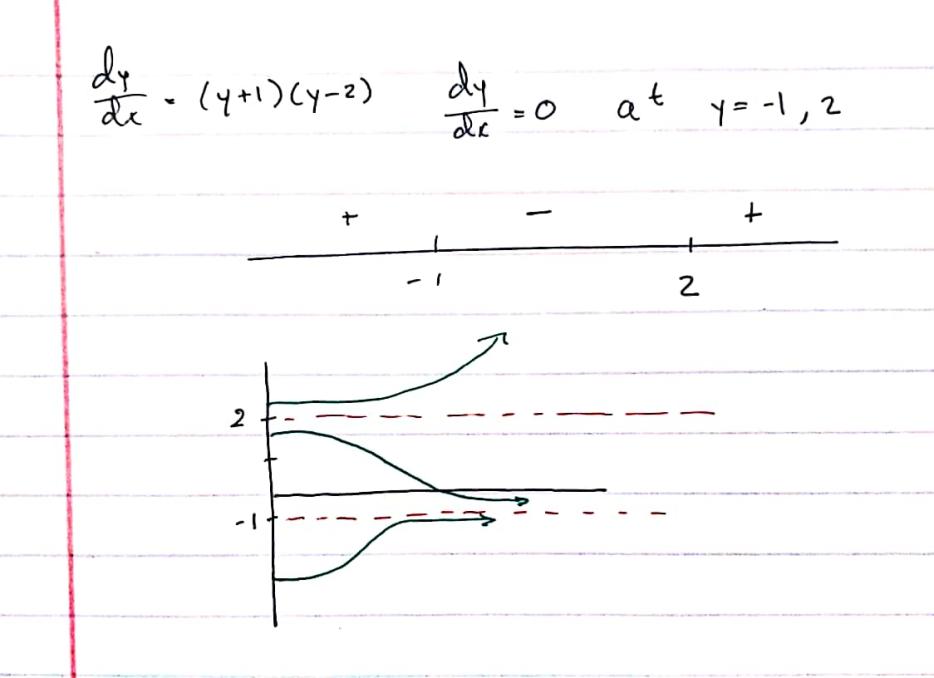 dy/dx = (y+1)(y-2) dy/dx = 0 at y = -1, 2
+ - +
-1 2
2
-1